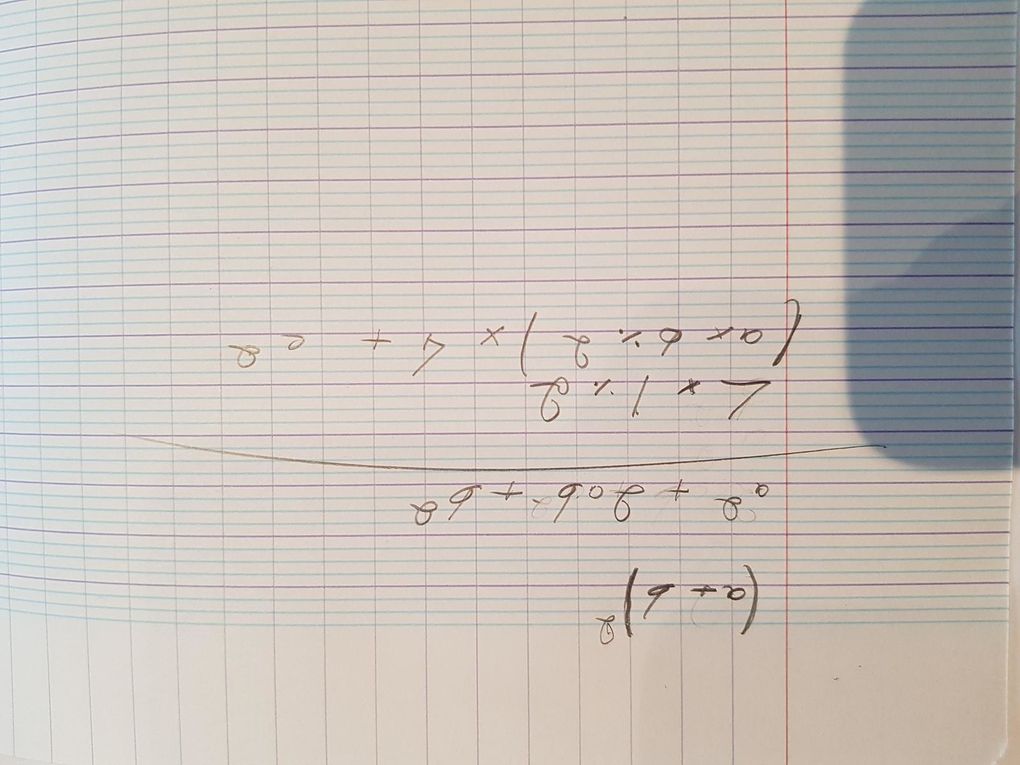 (a + b)²
a² + 2ab + b²
L × l ÷ 2
(a × b ÷ 2) × 4 + c²